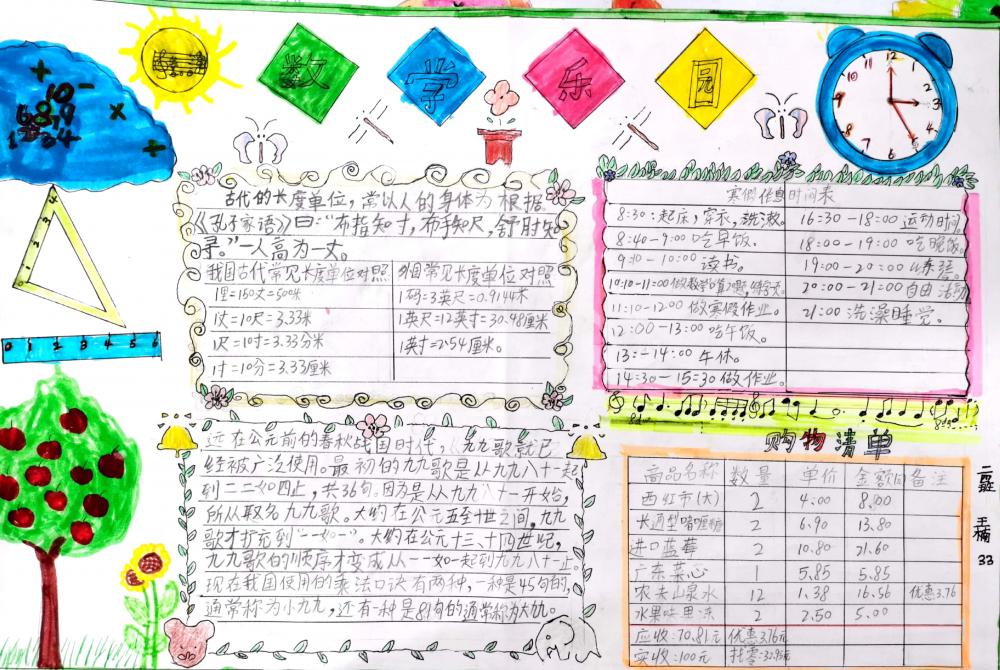 数 学 乐 园
古代的长度单位，常以人的身体为根据
《孔子家语》曰：“布指知寸，布手知尺，舒肘知
寻。”一人高为一丈。
我国古代常见长度单位对照
1里=150丈=500米
1丈=10尺=3.33米
1尺=10寸=3.33分米
1寸=10分=3.33厘米
外国常见长度单位对照
1码=3英尺=0.9144米
1英尺=12英寸=30.48厘米
1英寸=2.54厘米。
寒假作息时间表
8:30：起床，穿衣，洗漱。
8:40-9:00 吃早饭。
9:10-10:00 读书。
11:10-12:00 做寒假作业。
12:00-13:00 吃午饭。
13:-14:00 午休。
14:30-15:30 做作业。
16:30-18:00 运动时间
18:00-19:00 吃晚饭。
19:00-20:00 练琴。
20:00-21:00 自由活动
21:00 洗澡睡觉。
远在公元前的春秋战国时代，九九歌就已
经被广泛使用。最初的九九歌是从九九八十一起
到二二如四止，共36句。因为是从九九八十一开始，
所从取名九九歌。大约在公元五至十世之间，九九
歌才扩充到“一如一”。大约在公元十三、十四世纪，
九九歌的顺序才变成从一一如一起到九九八十一止。
现在我国使用的乘法口诀有两种，一种是45句的，
通常称为小九九，还有一种是81句的通常称为大九九。
购物清单
商品名称 数量 单价 金额 备注
西红市(大) 2 4.00 8.00
2 6.90 13.80
进口蓝莓 2 10.80 21.60
广东菜心 1 5.85 5.85
农夫山泉水 12 1.38 16.56 优惠3.76
水果味果冻 2 2.50 5.00
应收：70.81元 优惠3.76元
实收：100元
33
0 1 2 3 4 5 6
12 1 2 3 4 5 6 7 8 9 10 11